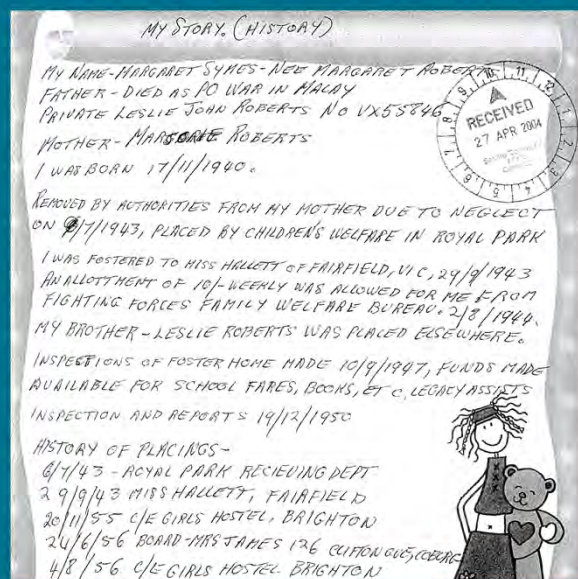 MY STORY. (HISTORY)
MY NAME-MARGARET SYMES-NEE MARGARET ROBERTS
FATHER-DIED AS PO WAR IN MALAY
PRIVATE LESLIE JOHN ROBERTS NO VX55846
MOTHER-MARJORIE ROBERTS
I WAS BORN 17/11/1940.
RECEIVED
27 APR 2004
REMOVED BY AUTHORITIES FROM MY MOTHER DUE TO NEGLECT
ON 6/7/1943, PLACED BY CHILDREN'S WELFARE IN ROYAL PARK
I WAS FOSTERED TO MISS HALLETT OF FAIRFIELD, VIC, 29/9/1943
AN ALLOTTMENT OF 10/- WEEKLY WAS ALLOWED FOR ME FROM
FIGHTING FORCES FAMILY WELFARE BUREAU. 2/8/1944.
MY BROTHER-LESLIE ROBERTS WAS PLACED ELSEWHERE.
INSPECTIONS OF FOSTER HOME MADE 10/9/1947, FUNDS MADE
AVAILABLE FOR SCHOOL FARES, BOOKS, ETC, LEGACY ASSISTS
INSPECTION AND REPORTS 19/12/1950
HISTORY OF PLACINGS-
6/7/43-ROYAL PARK RECIEVING DEPT
29/9/43 MISS HALLETT, FAIRFIELD
20/11/55 C/E GIRLS HOSTEL, BRIGHTON
24/6/56 BOARD-MRS JAMES 126 CLIFTON GVE, COBURG
4/8/56 C/E GIRLS HOSTEL BRIGHTON